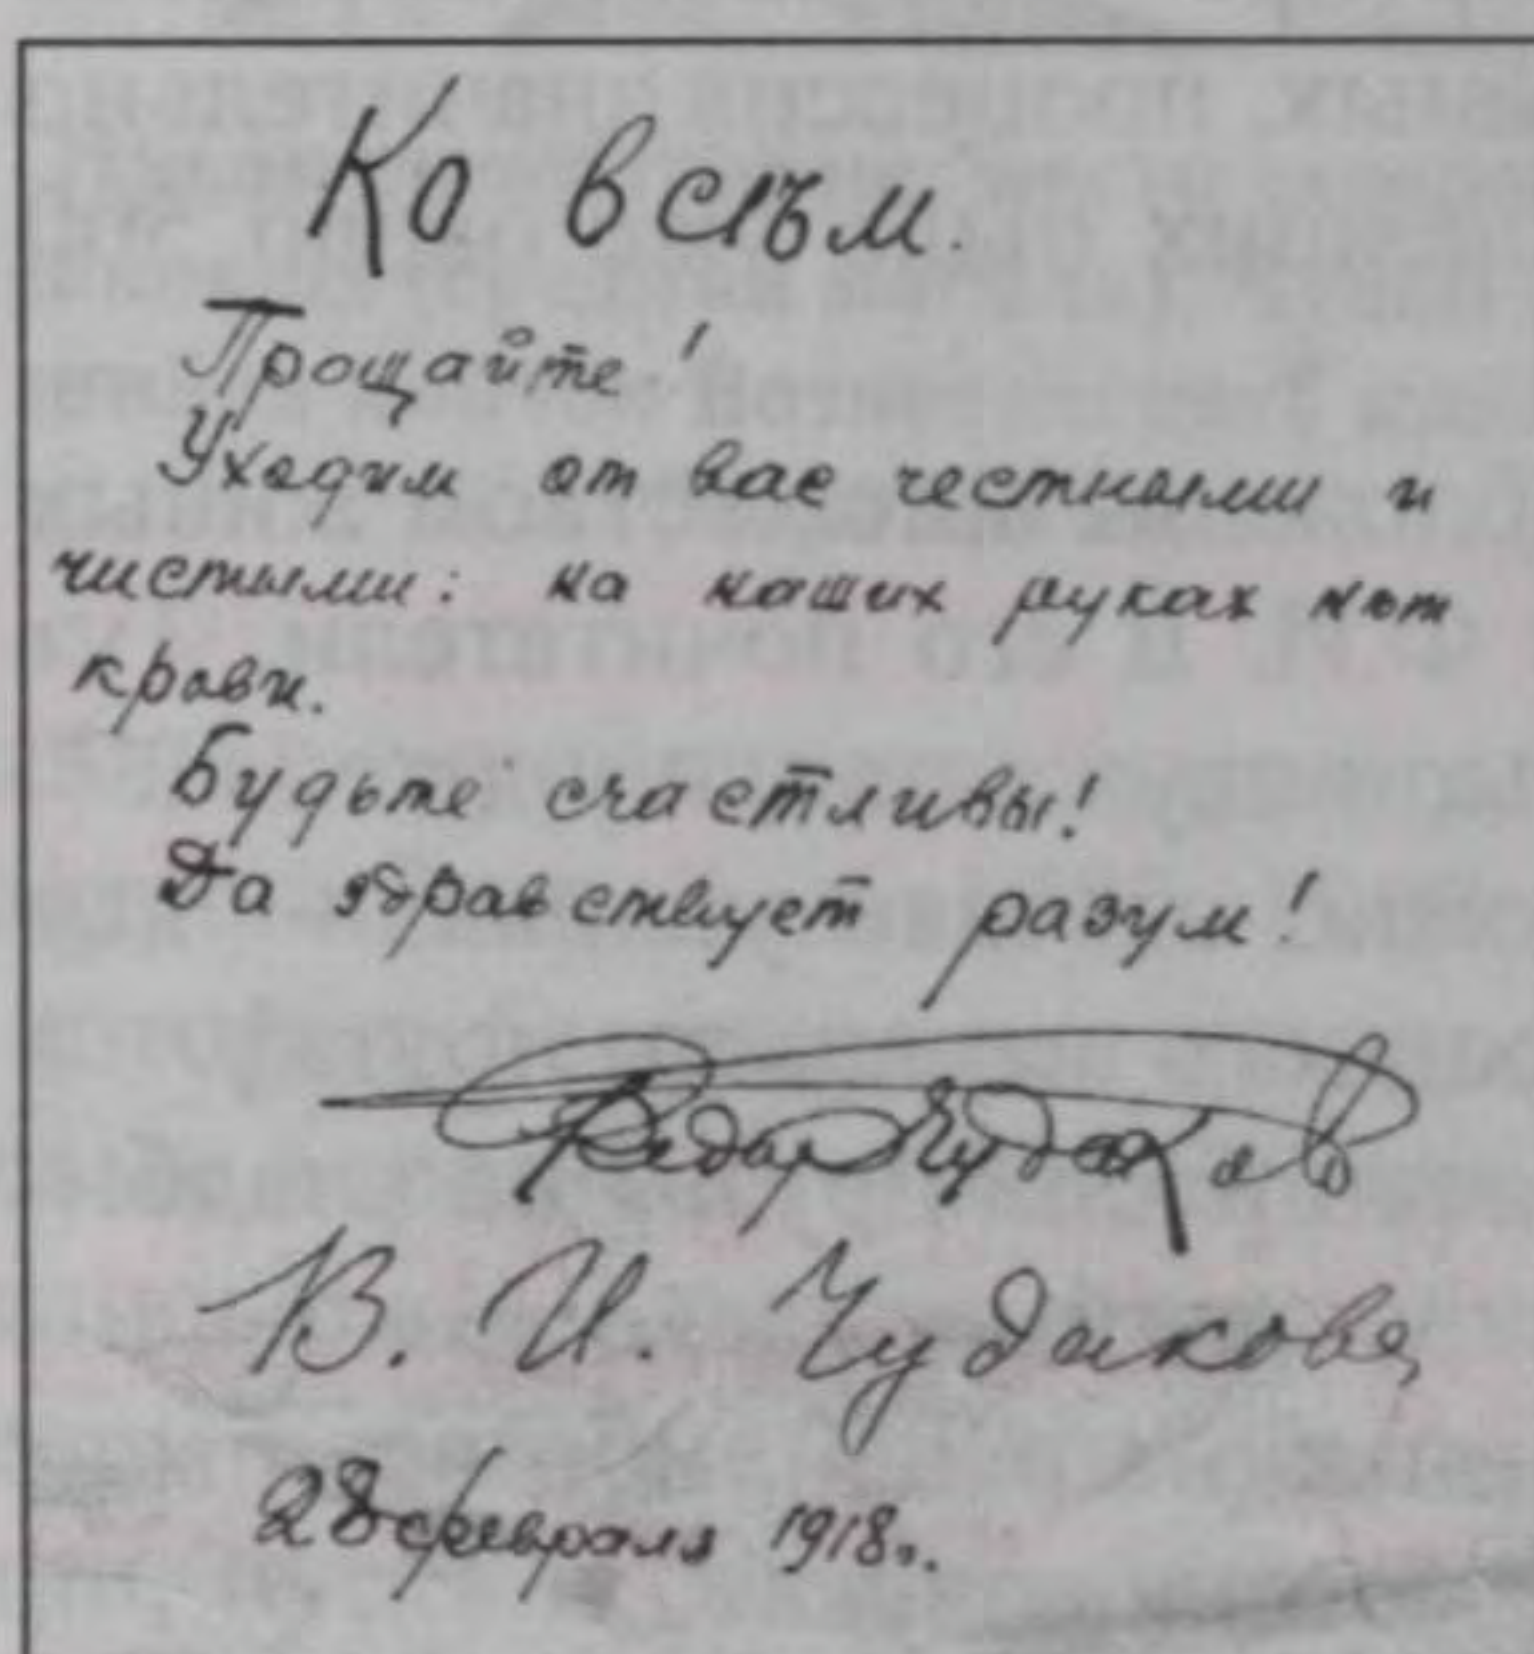 Ко всѣм.
Прощайте!
Уходим от вас честными и
чистыми: на наших руках нѣт
крови.
Будьте счастливы!
Да здравствует разум!
Федор Чудаков
В. И. Чудакова
28 февраля 1918г.